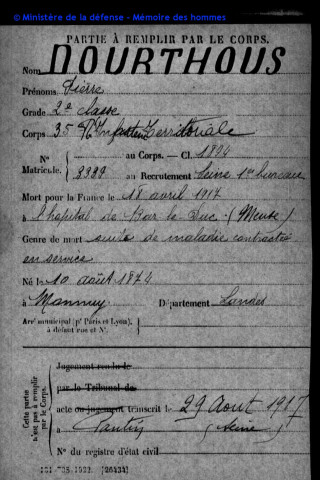 © Ministère de la défense - Mémoire des hommes
PARTIE À REMPLIR PAR LE CORPS.
Nom DOURTHOUS
Prénoms Pierre
Grade 2e classe
Corps 35e Infanterie Territoriale
N° au Corps. — Cl. 1894
Matricule. 3399 au Recrutement Seine 1er bureau
Mort pour la France le 18 avril 1917
à l'hopital de Bar le Duc (Meuse)
Genre de mort suite de maladie contractée
en service
Né le 10 août 1874
à Département Landes
Arrt municipal (pr Paris et Lyon),
à défaut rue et N°.
Cette partie
n'est pas à remplir
par le Corps.
Jugement rendu le
par le Tribunal de
acte ou jugement transcrit le 29 Aout 1917
à Pantin (Seine)
N° du registre d'état civil